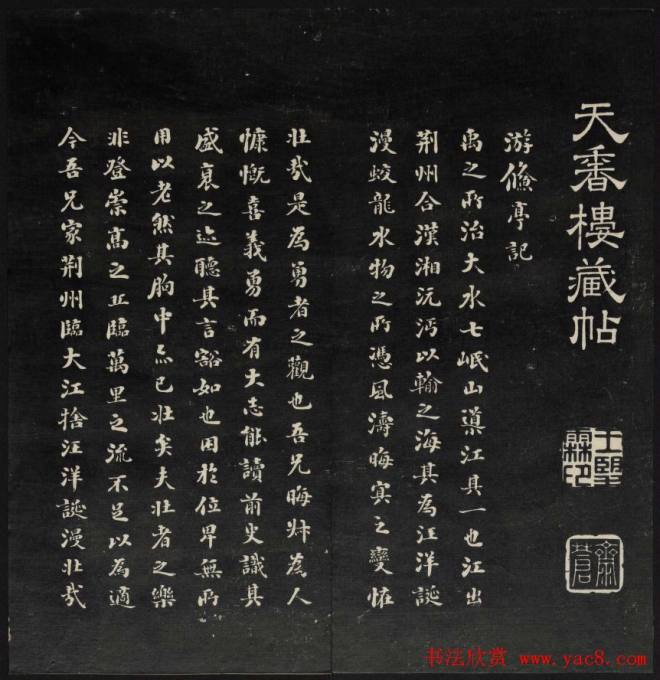 天香樓藏帖
王望霖印
游鯈亭記
禹之所治大水七岷山導江其一也江出
荊州合漢湘沅沔以輸之海其為汪洋誕
漫蛟龍水物之所憑風濤晦冥之變怪
壯哉是為勇者之觀也吾兄晦叔為人
慷慨喜義勇而有大志能讀前史識其
盛衰之迹聽其言豁如也困於位卑無所
用以老然其胸中亦已壯矣夫壯者之樂
非登崇高之丘臨萬里之流不足以為適
今吾兄家荊州臨大江捨汪洋誕漫壯哉
书法欣赏 www.yac8.com